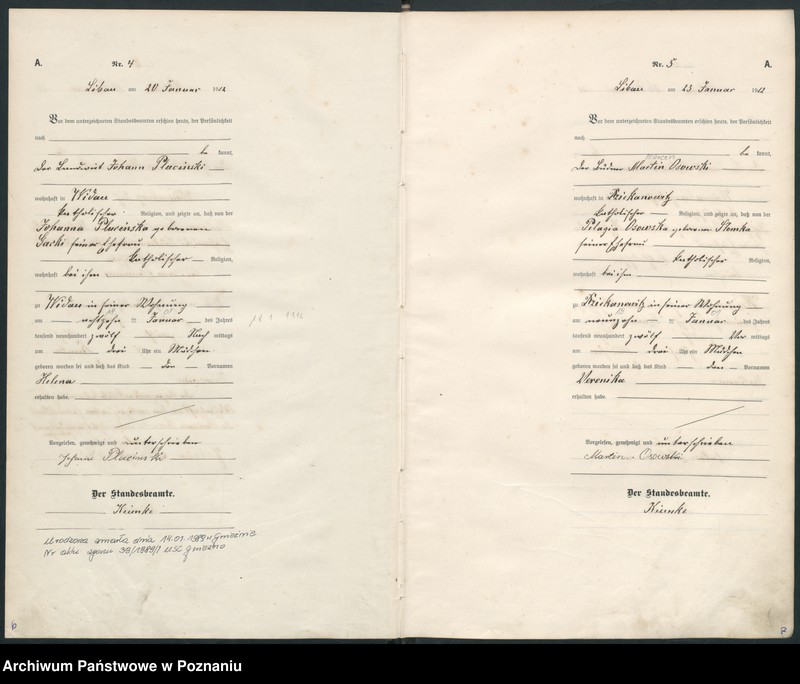 A.
Nr. 4
Libau am 20 Januar 1912
Vor dem unterzeichneten Standesbeamten erschien heute, der Persönlichkeit
nach
be kannt,
der Landwirt Johann Placinski
wohnhaft in Widau
katholischer Religion, und zeigte an, daß von der
Johanna Placinska geborenen
Sacki seiner Ehefrau
katholischer Religion,
wohnhaft bei ihm
zu Widau in seiner Wohnung
am achtzehn ten Januar des Jahres
tausend neunhundert zwölf Nach mittags
um drei Uhr ein Mädchen
geboren worden sei und daß das Kind den Vornamen
Helena
erhalten habe.
Vorgelesen, genehmigt und unterschrieben
Johann Placinski
Der Standesbeamte.
Urodzona zmarła dnia 14.01.1989 w Gnieźnie
Nr aktu zgonu 38/1989/I USC Gniezno
Nr. 5
A.
Libau am 23 Januar 1912
Vor dem unterzeichneten Standesbeamten erschien heute, der Persönlichkeit
nach
be kannt,
der Martin Osowski
wohnhaft in Dziekanowitz
katholischer Religion, und zeigte an, daß von der
Pelagia Osowska geborenen Slomka
seiner Ehefrau
katholischer Religion,
wohnhaft bei ihm
zu Dziekanowitz in seiner Wohnung
am neunzehn ten Januar des Jahres
tausend neunhundert zwölf Vor mittags
um drei Uhr ein Mädchen
geboren worden sei und daß das Kind den Vornamen
Veronika
erhalten habe.
Vorgelesen, genehmigt und unterschrieben
Martin Osowski
Der Standesbeamte.
Archiwum Państwowe w Poznaniu